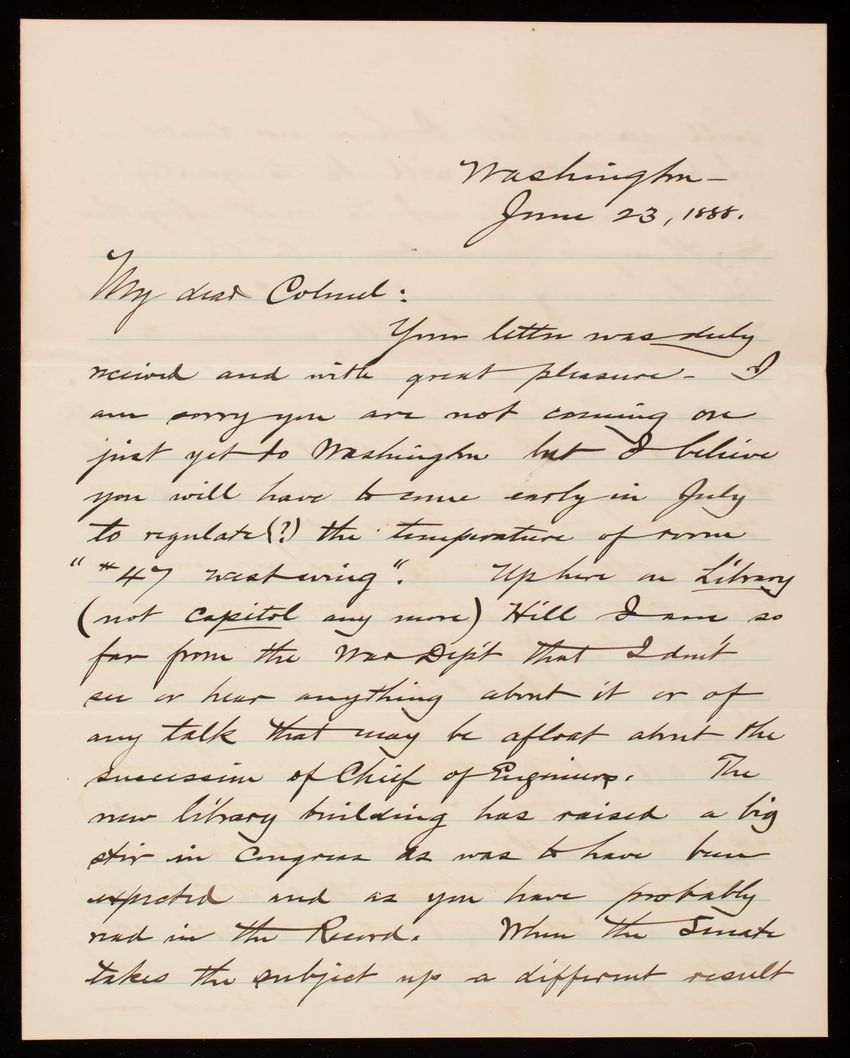 Washington –
June 23, 1888.
My dear Colonel:
Your letter was duly
received and with great pleasure – I
am sorry you are not coming on
just yet to Washington but I believe
you will have to come early in July
to regulate (?) the temperature of room
"#47 west wing". Up here on Library
(not capitol any more) Hill I am so
far from the War Dep't that I don't
see or hear anything about it or of
any talk that may be afloat about the
succession of Chief of Engineers. The
new library building has raised a big
stir in Congress as was to have been
expected and as you have probably
read in the Record. When the Senate
takes the subject up a different result